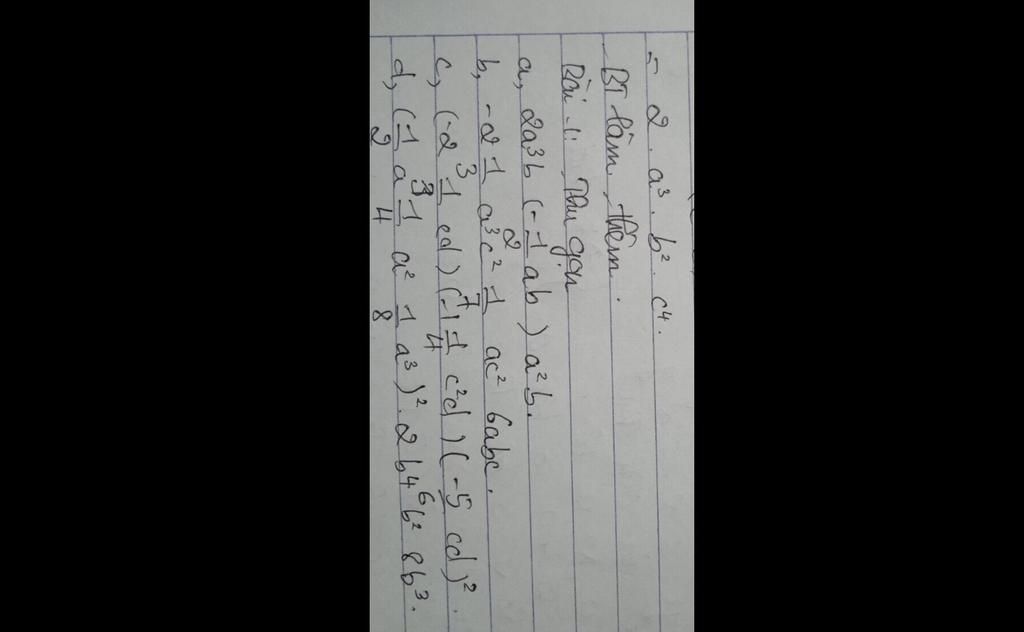 = 2 . a³ . b² . c⁴ .
BT làm thêm .
Bài 1: Thu gọn
a, 2a³b (-1/2 ab) a²b .
b, -2 1/3 a³c² 1/7 ac² 6abc .
c, (-2 1/3 cd) (-1 1/4 c²d) (-5/6 cd)² .
d, (1/2 a 1/4 a² 1/8 a³)² . 2b 4b² 8b³ .